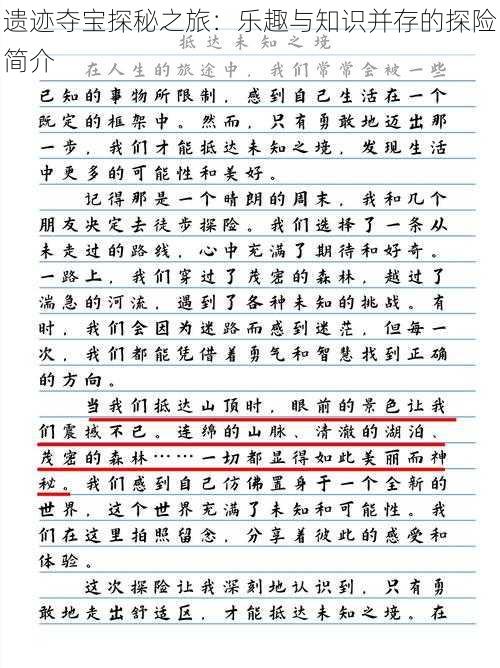 遗迹夺宝探秘之旅：乐趣与知识并存的探险
简介
抵达未知之境
在人生的旅途中，我们常常会被一些
已知的事物所限制，感到自己生活在一个
既定的框架中。然而，只有勇敢地迈出那
一步，我们才能抵达未知之境，发现生活
中更多的可能性和美好。
记得那是一个晴朗的周末，我和几个
朋友决定去徒步探险。我们选择了一条从
未走过的路线，心中充满了期待和好奇。
一路上，我们穿过了茂密的森林，越过了
湍急的河流，遇到了各种未知的挑战。有
时，我们会因为迷路而感到迷茫，但每一
次，我们都能凭借着勇气和智慧找到正确
的方向。
当我们抵达山顶时，眼前的景色让我
们震撼不已。连绵的山脉、清澈的湖泊、
茂密的森林……一切都显得如此美丽而神
秘。我们感到自己仿佛置身于一个全新的
世界，这个世界充满了未知和可能性。我
们在这里拍照留念，分享着彼此的感受和
体验。
这次探险让我深刻地认识到，只有勇
敢地走出舒适区，才能抵达未知之境。在